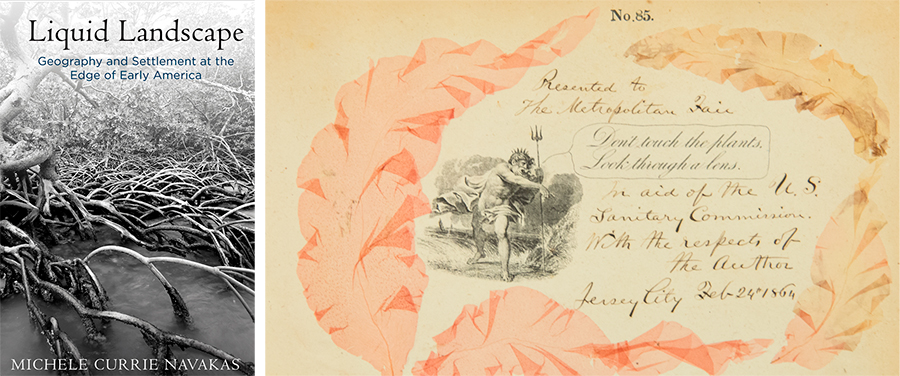 Liquid Landscape
Geography and Settlement at the
Edge of Early America
MICHELE CURRIE NAVAKAS
No. 85.
Presented to
The Metropolitan Fair
Don't touch the plants,
Look through a lens.
In aid of the U. S.
Sanitary Commission.
With the respects of
the Author
Jersey City Feb-24th 1864